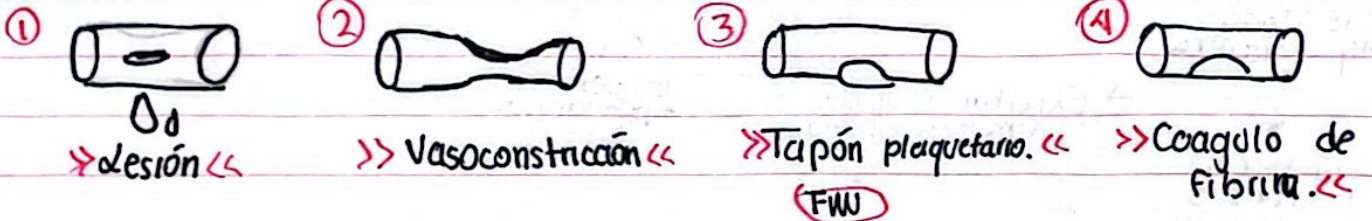 ① ② ③ ④
»Lesión« »Vasoconstricción« »Tapón plaquetario.« »Coagulo de
fibrina.«
FVW